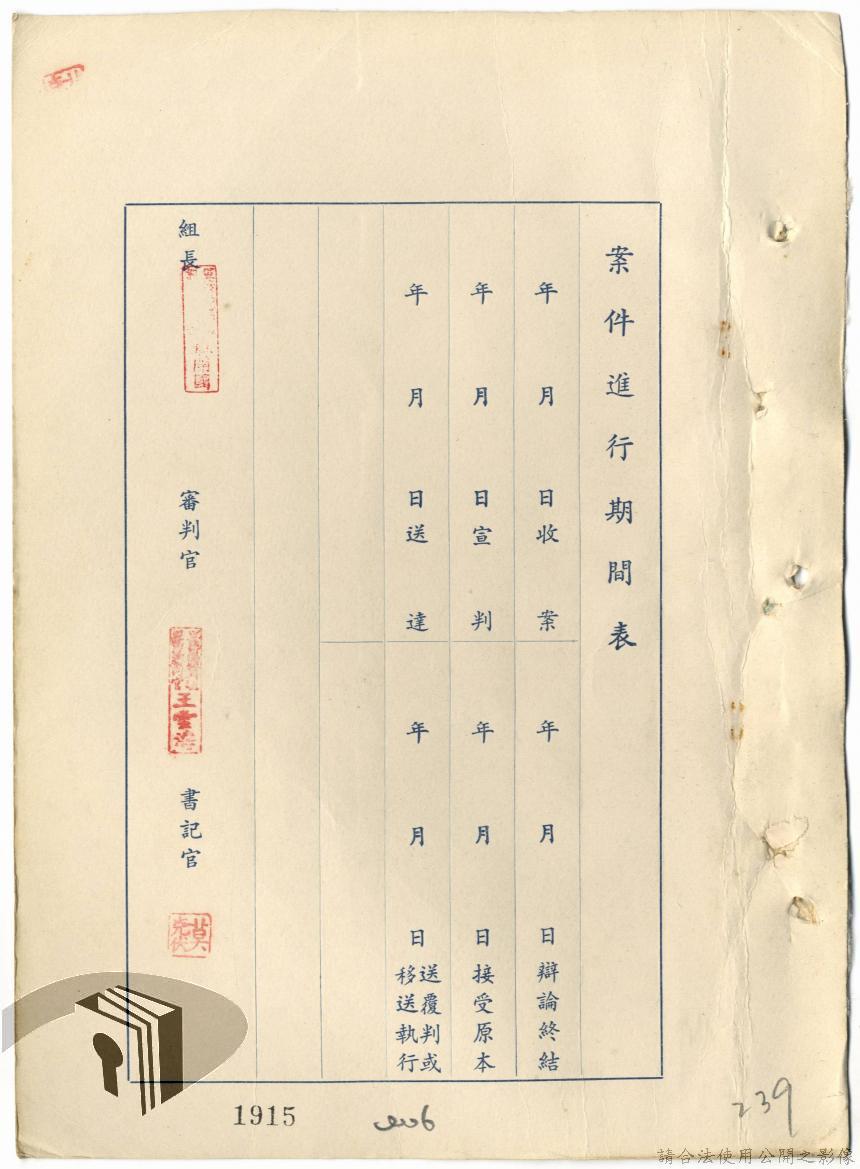 案件進行期間表
年 月 日收案
年 月 日辯論終結
年 月 日宣判
年 月 日接受原本
年 月 日送達
年 月 日送覆判或
移送執行
組長
審判官
王雲濤
書記官
莫
1915
239
請合法使用公開之影像